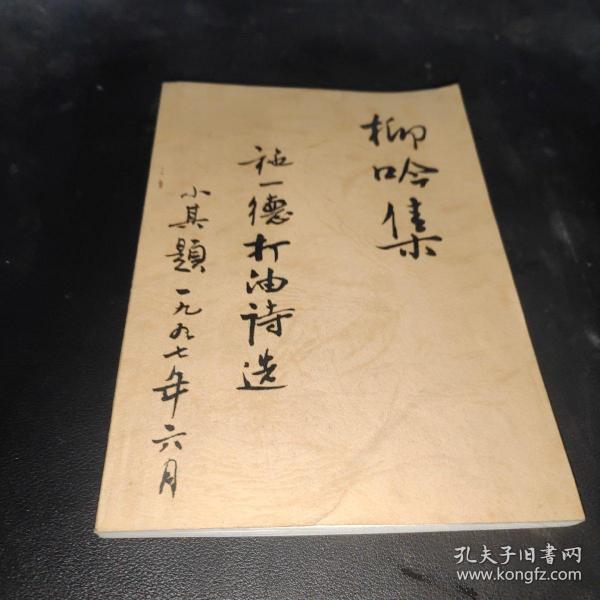 柳吟集
一德打油诗选
小其题一九九七年六月
孔夫子旧书网
www.kongfz.com